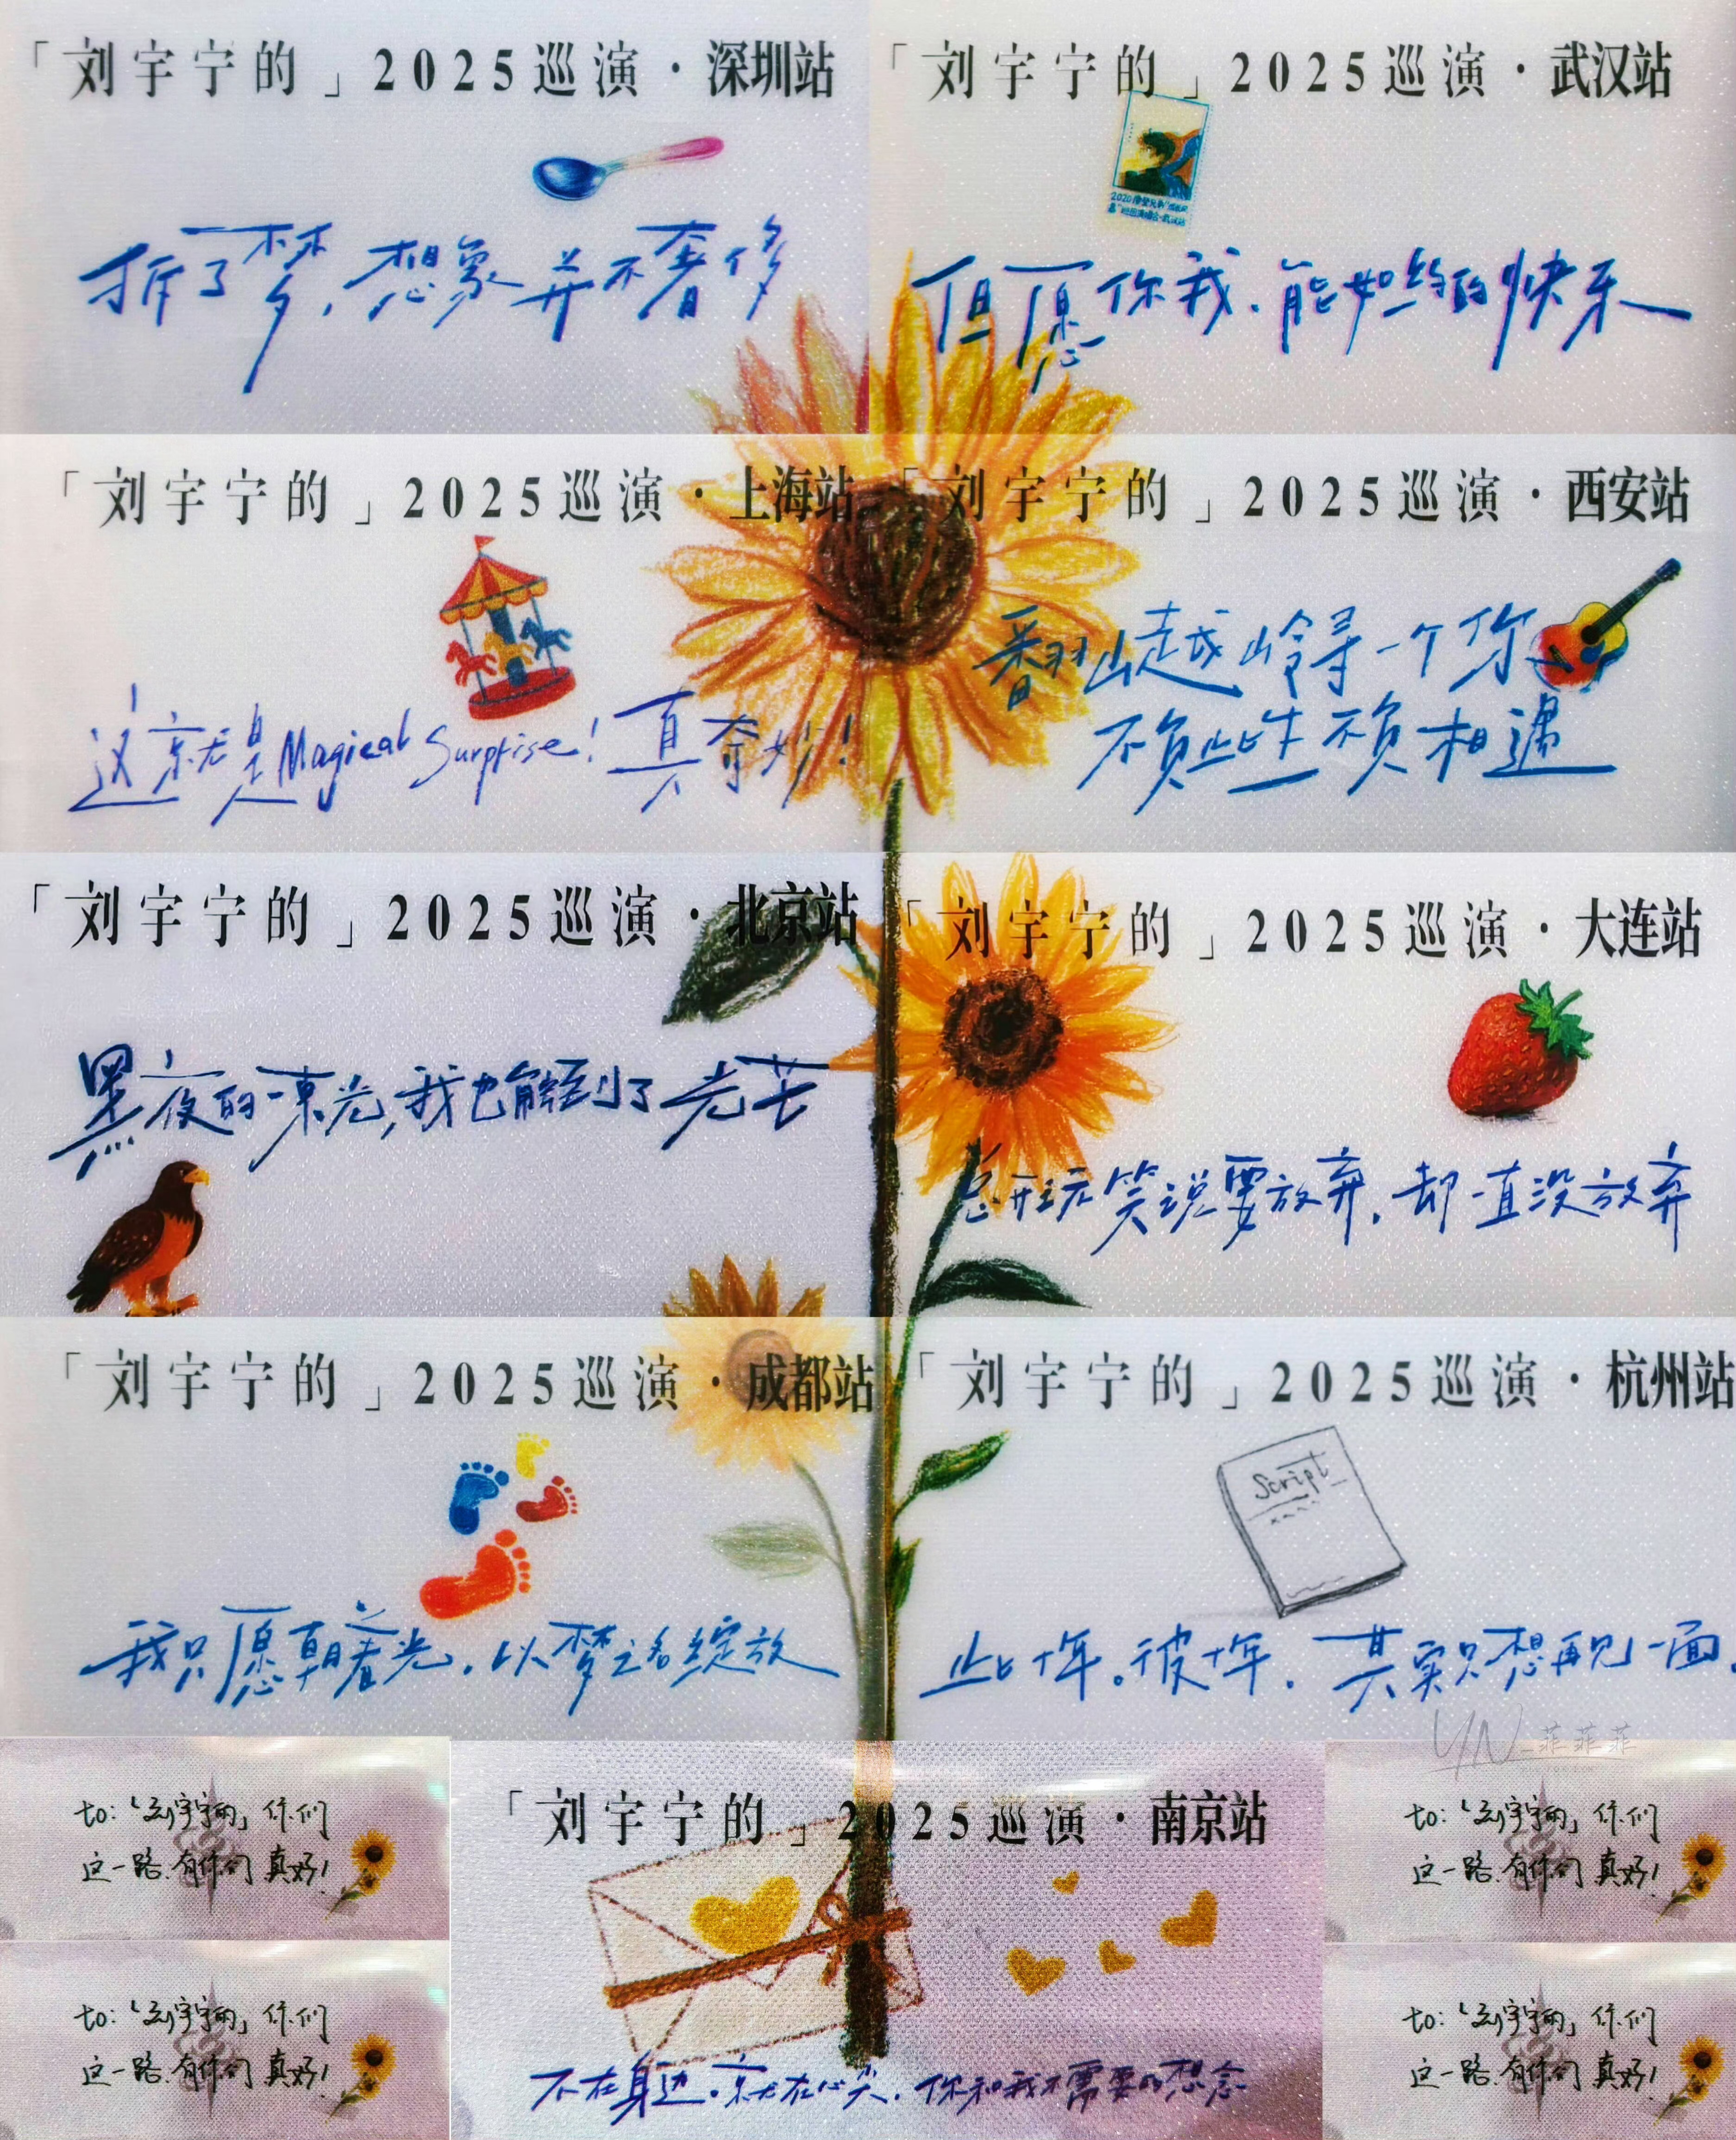 「刘宇宁的」2025巡演·深圳站
拆了梦,想象并不奢侈
「刘宇宁的」2025巡演·武汉站
但愿你我、能如约的快乐
「刘宇宁的」2025巡演·上海站
这就是Magical Surprise!真奇妙!
「刘宇宁的」2025巡演·西安站
翻山越岭寻一个你
不负此生不负相遇
「刘宇宁的」2025巡演·北京站
黑夜的一束光,我也能到了光芒
「刘宇宁的」2025巡演·大连站
总开玩笑说要放弃,却一直没放弃
「刘宇宁的」2025巡演·成都站
我只愿朝着光,以梦之名绽放
「刘宇宁的」2025巡演·杭州站
Script
此十年。彼十年.其实只想再见一面.
YN_菲菲菲
to:「刘宇宁的」你们
这一路.有你们真好!
「刘宇宁的」2025巡演·南京站
不在身边.就在心尖.你和我不需要的想念
to:「刘宇宁的」你们
这一路.有你们真好!
to:「刘宇宁的」你们
这一路.有你们真好!
to:「刘宇宁的」你们
这一路.有你们真好!